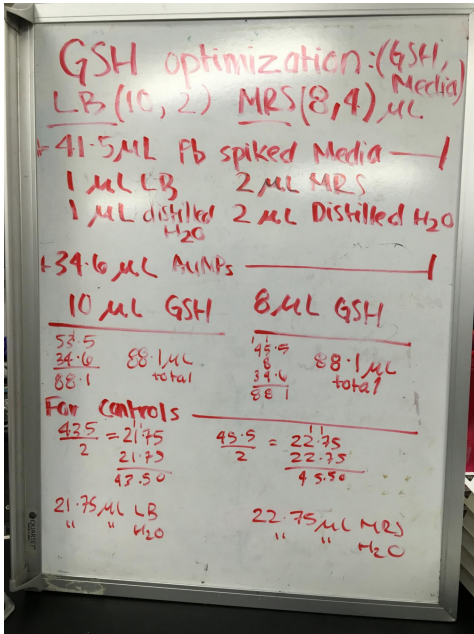 GSH optimization: (GSH, Media)
LB (10, 2) MRS (8,4) µL
+41.5µL Pb spiked Media
1 µL LB 2µL MRS
1 µL distilled H2O 2 µL Distilled H2O
+34.6 µL AuNPs
10 µL GSH 8µL GSH
53.5
34.6
88.1
88.1µL total
45.5
8
34.6
88 1
88.1µL total
For Controls
43.5/2 = 21.75
21.75
43.50
45.5/2 = 22.75
22.75
45.50
21.75µL LB
" " H2O
22.75µL MRS
" " H2O
QUARTET